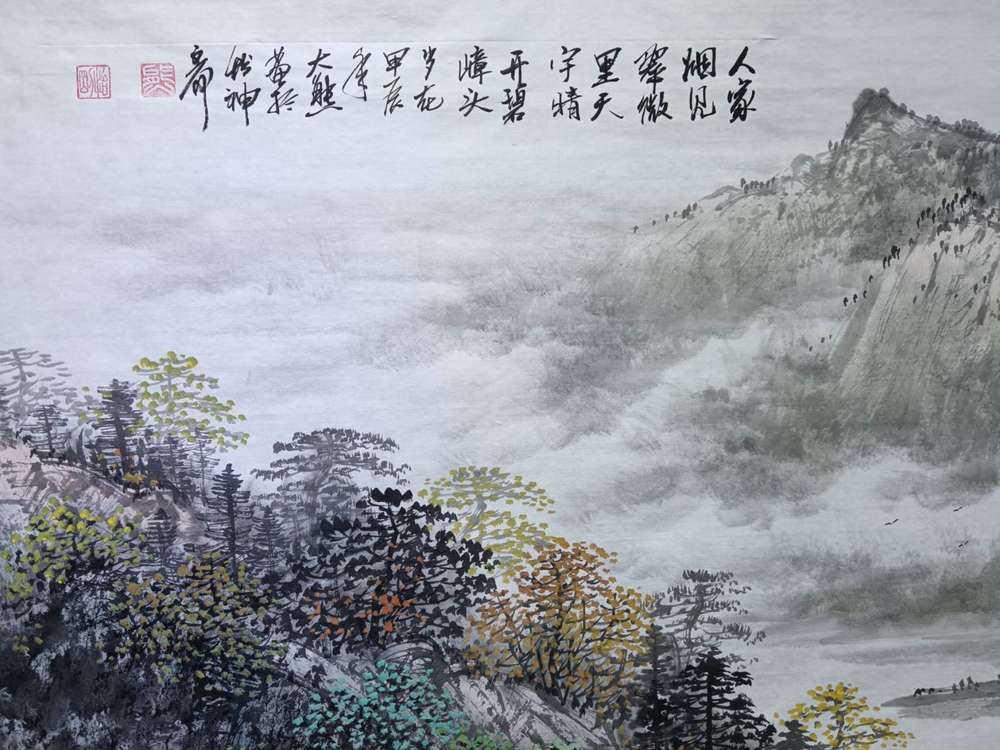 人家
烟见
翠微
里天
宇晴
开碧
嶂头
岁在
甲辰
年
大熊
画於
神
斋